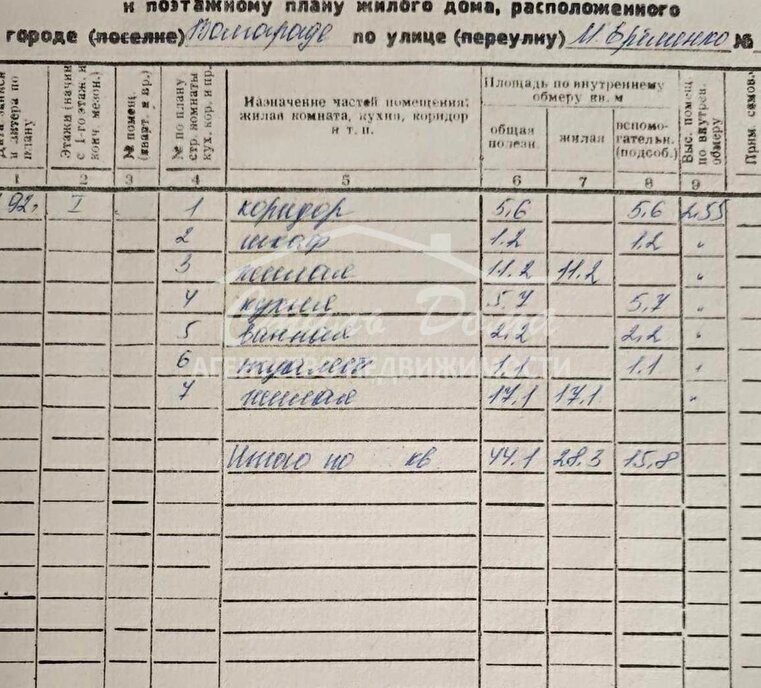 к поэтажному плану жилого дома, расположенного
городе (поселке) Волгограде по улице (переулку) М. Еременко №
и литера по плану
Этажи (начин. с 1-го этаж. и конч. мезон.)
№ помещ. (кварт. и пр.)
№ по плану стр. комнаты кух. кор. и пр.
Назначение частей помещения: жилая комната, кухня, коридор и т. п.
Площадь по внутреннему обмеру кв. м
общая полезн.
жилая
вспомогательн. (подсоб.)
Выс. помещ. по внутрен. обмеру
Прим. самов.
1 2 3 4 5 6 7 8 9
92, I 1 коридор 5,6 5,6 2.55
2 шкаф 1.2 1.2 "
3 жилая 11.2 11.2 "
4 кухня 5,7 5,7 "
5 ванная 2,2 2,2 "
6 туалет 1.1 1.1 "
7 жилая 17,1 17,1 "
Итого по кв 44.1 28.3 15,8
Дома
АГЕНТСТВО НЕДВИЖИМОСТИ